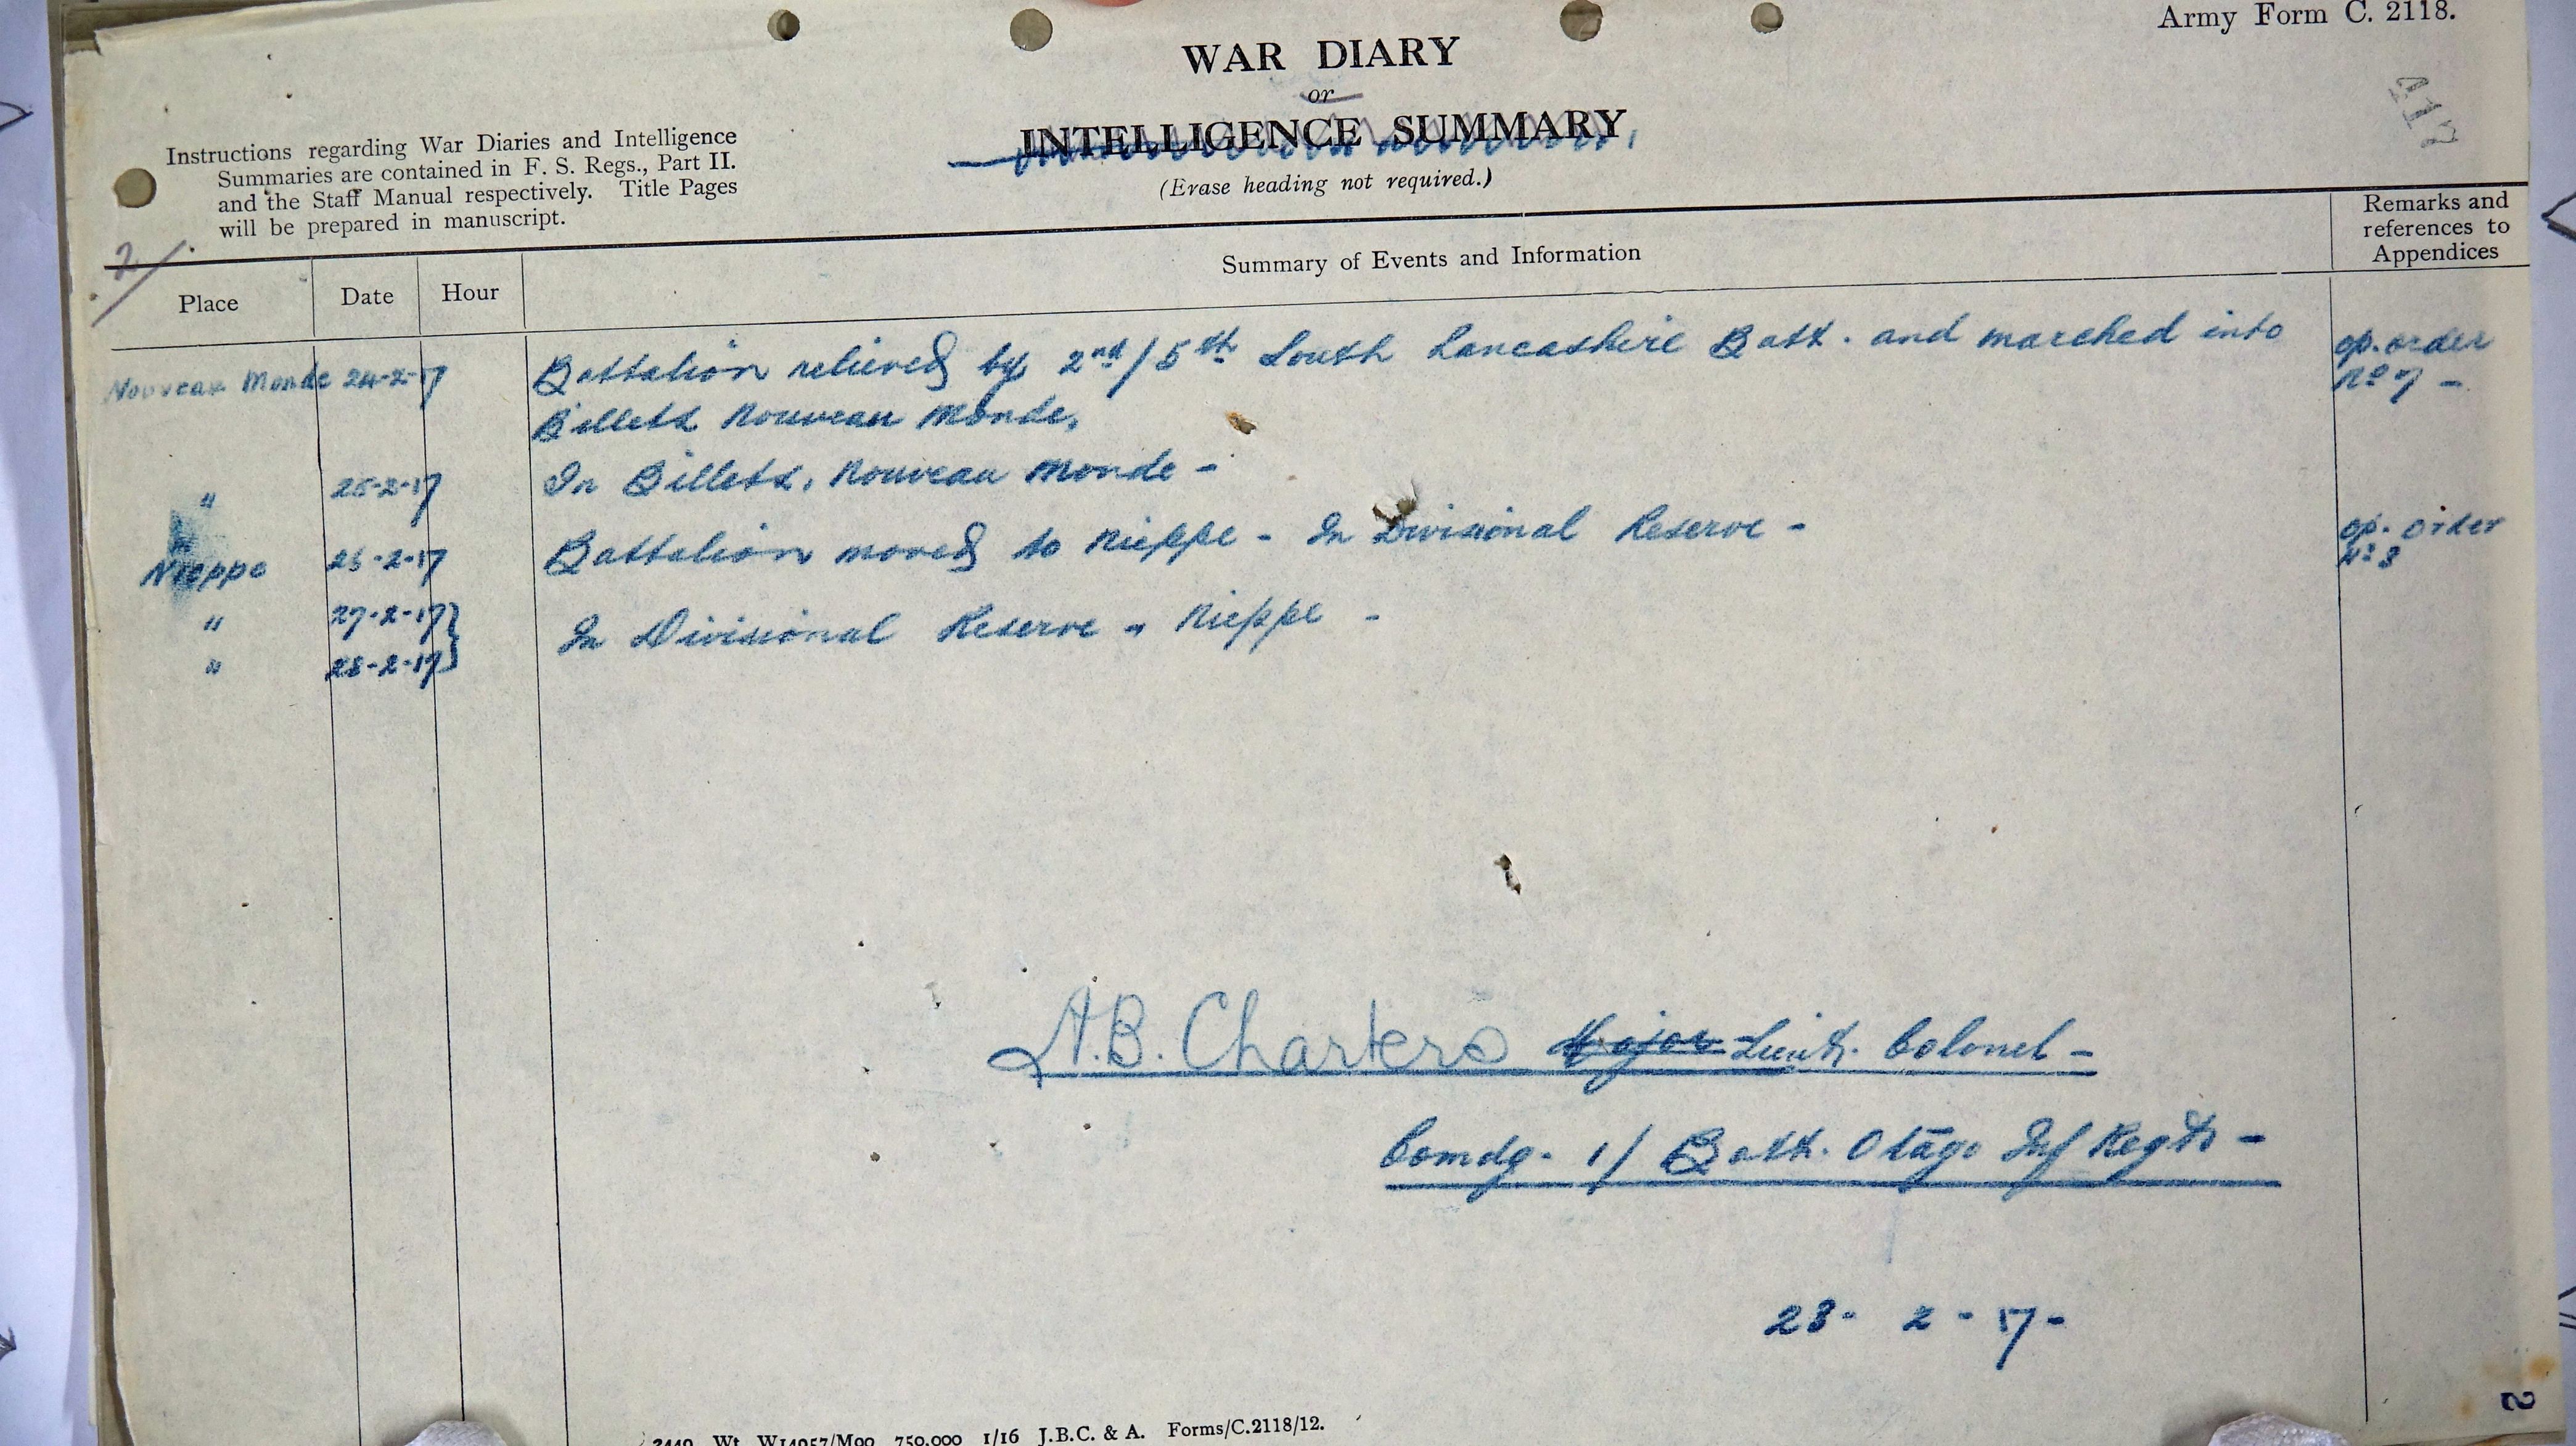 Army Form C. 2118.
WAR DIARY
or
INTELLIGENCE SUMMARY
(Erase heading not required.)
Instructions regarding War Diaries and Intelligence
Summaries are contained in F. S. Regs., Part II.
and the Staff Manual respectively. Title Pages
will be prepared in manuscript.
2/.
Place Date Hour Summary of Events and Information Remarks and
references to
Appendices
Nouveau Monde 24-2-17 Battalion relieved by 2nd/5th South Lancashire Batt. and marched into op. order
Billets Nouveau Monde. No 7 -
" 25-2-17 In Billets, Nouveau Monde -
Nieppe 26-2-17 Battalion moved to Nieppe - In Divisional Reserve - op. order
No 8
" 27-2-17 } In Divisional Reserve - Nieppe -
" 28-2-17 }
A.B. Charters Major Lieut. Colonel -
Comdg. 1/ Batt. Otago Inf Regt -
28- 2 - 17 -
2449 Wt. W14957/M90 750,000 1/16 J.B.C. & A. Forms/C.2118/12.
2